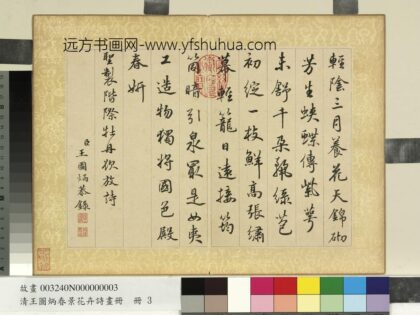 远方书画网-www.yfshuhua.com
輕陰三月養花天錦砌
芳生蛺蝶傳紫萼
未舒千朵飛綠苞
初綻一枝鮮高張繡
幕輕籠日遠接筠
筒暗引泉最是
工造物獨將國色殿
春妍
聖製階際牡丹欲放詩
臣王圖炳恭錄
故畫 003240N000000003
清王圖炳春景花卉詩畫冊 冊 3